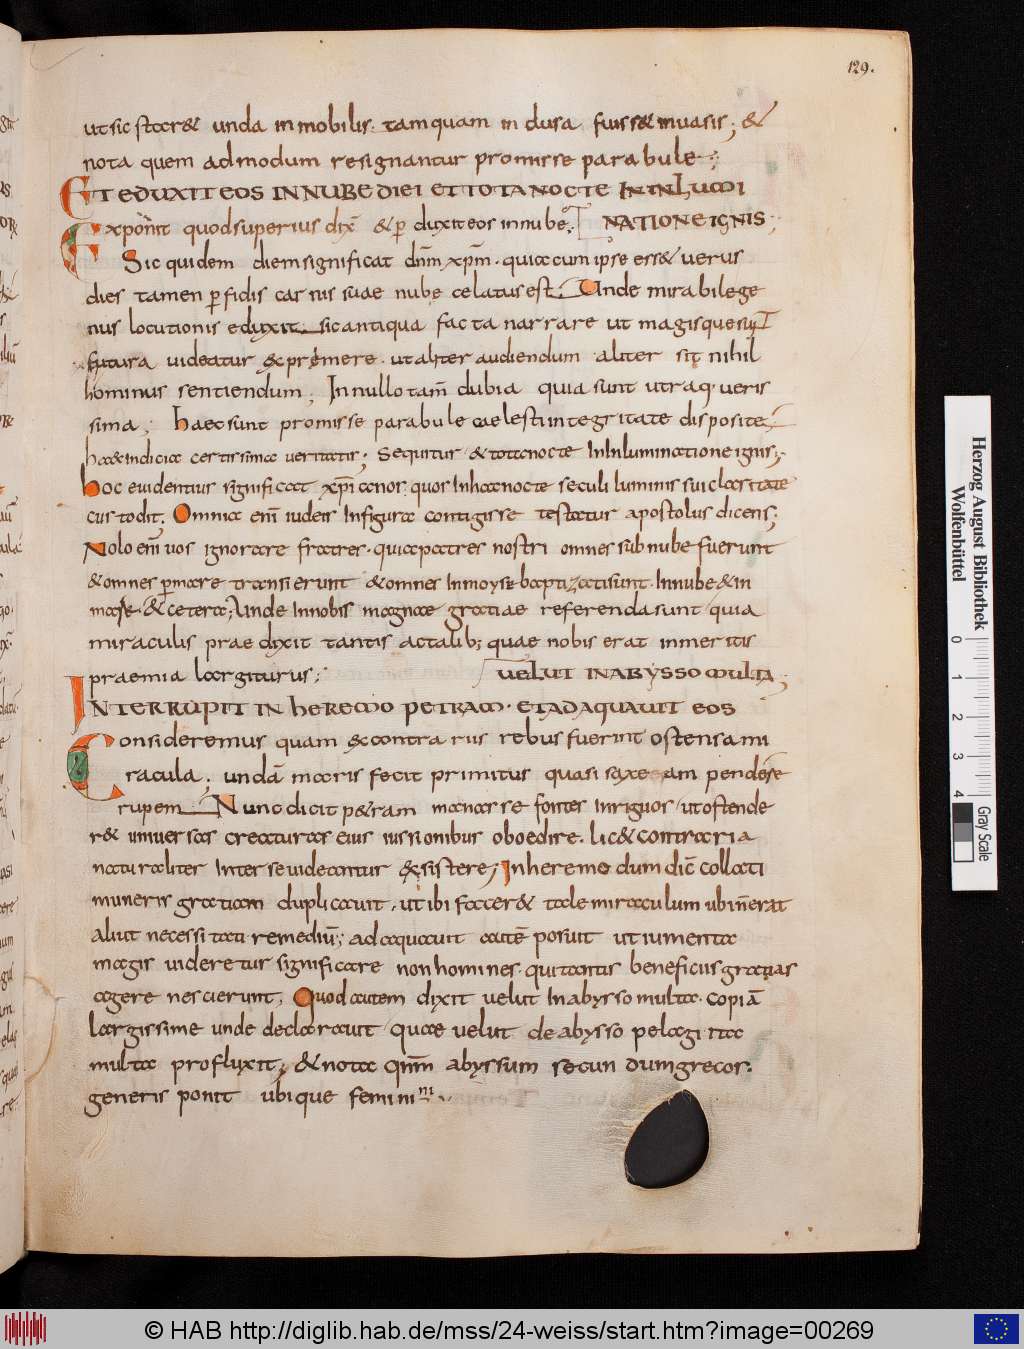 129.
ut sic staret unda inmobilis. tamquam indusa fuisset inuasis; et
nota quem admodum resignantur promisse parabule;
ET EDUXIT EOS IN NUBE DIEI ET TOTA NOCTE IN INLUMI
Exponit quod superius dix̄ et per duxit eos in nube; NATIONE IGNIS;
Sic quidem diem significat dn̄m xp̄m. quia cum ipse esset uerus
dies tamen ꝑfidis carnis suae nube celatus est. Unde mirabile ge
nus locutionis eduxit. sic antiqua facta narrare ut magis
futura uideatur exprimere. ut aliter audiendum aliter sit nihil
hominus sentiendum; In nullo tam̄ dubia quia sunt utraq. ueris
sima; haec sunt promisse parabule caelesti integritate disposite;
haec indicia certissima ueritatis; Sequitur et tota nocte IN Inluminatione ignis;
hoc euidentius significat xp̄i canor. quos In hac nocte seculi luminis sui claritate
custodit; Omnia eni̅ iudeis In figura contigisse testatur apostolus dicens;
Nolo eni̅ uos ignorare fratres. quia patres nostri omnes sub nube fuerunt
et omnes ꝑ mare transierunt et omnes In moyse baptizati sunt. In nube et in
mare. et cetera; Unde In nobis magnae gratiae referenda sunt quia
miraculis praedixit tantis actalib; quae nobis erat inmeritis
praemia largiturus; UELUT IN ABYSSO MULTA;
INTERRUPIT IN HEREMO PETRAM. ET ADAQUAUIT EOS
Consideremus quam et contrariis rebus fuerint ostensa mi
racula; undā maris fecit primitus quasi saxeam pendere
rupem Nunc dicit petram manasse fontes Inriguos ut ostende
ret uniuersas creaturas eius iussionibus oboedire. licet contraria
naturaliter Inter se uideantur existere; In heremo dum dic̄ collati
muneris gratiam duplicauit. ut ibi faceret tale miraculum ubi n̄ erat
aliut necessitati remediū; adaquauit autē posuit ut iumenta
magis uideretur significare non homines. qui tantis beneficiis gratias
agere nescierunt; Quod autem dixit uelut In abysso multa. copiā
largissime unde declarauit quae uelut de abysso pelagi ita
multa profluxit; et nota qnm̄ abyssum secundum grecos.
generis ponit ubique feminini
Herzog August Bibliothek
Wolfenbüttel
0 1 2 3 4
Gray Scale
© HAB http://diglib.hab.de/mss/24-weiss/start.htm?image=00269